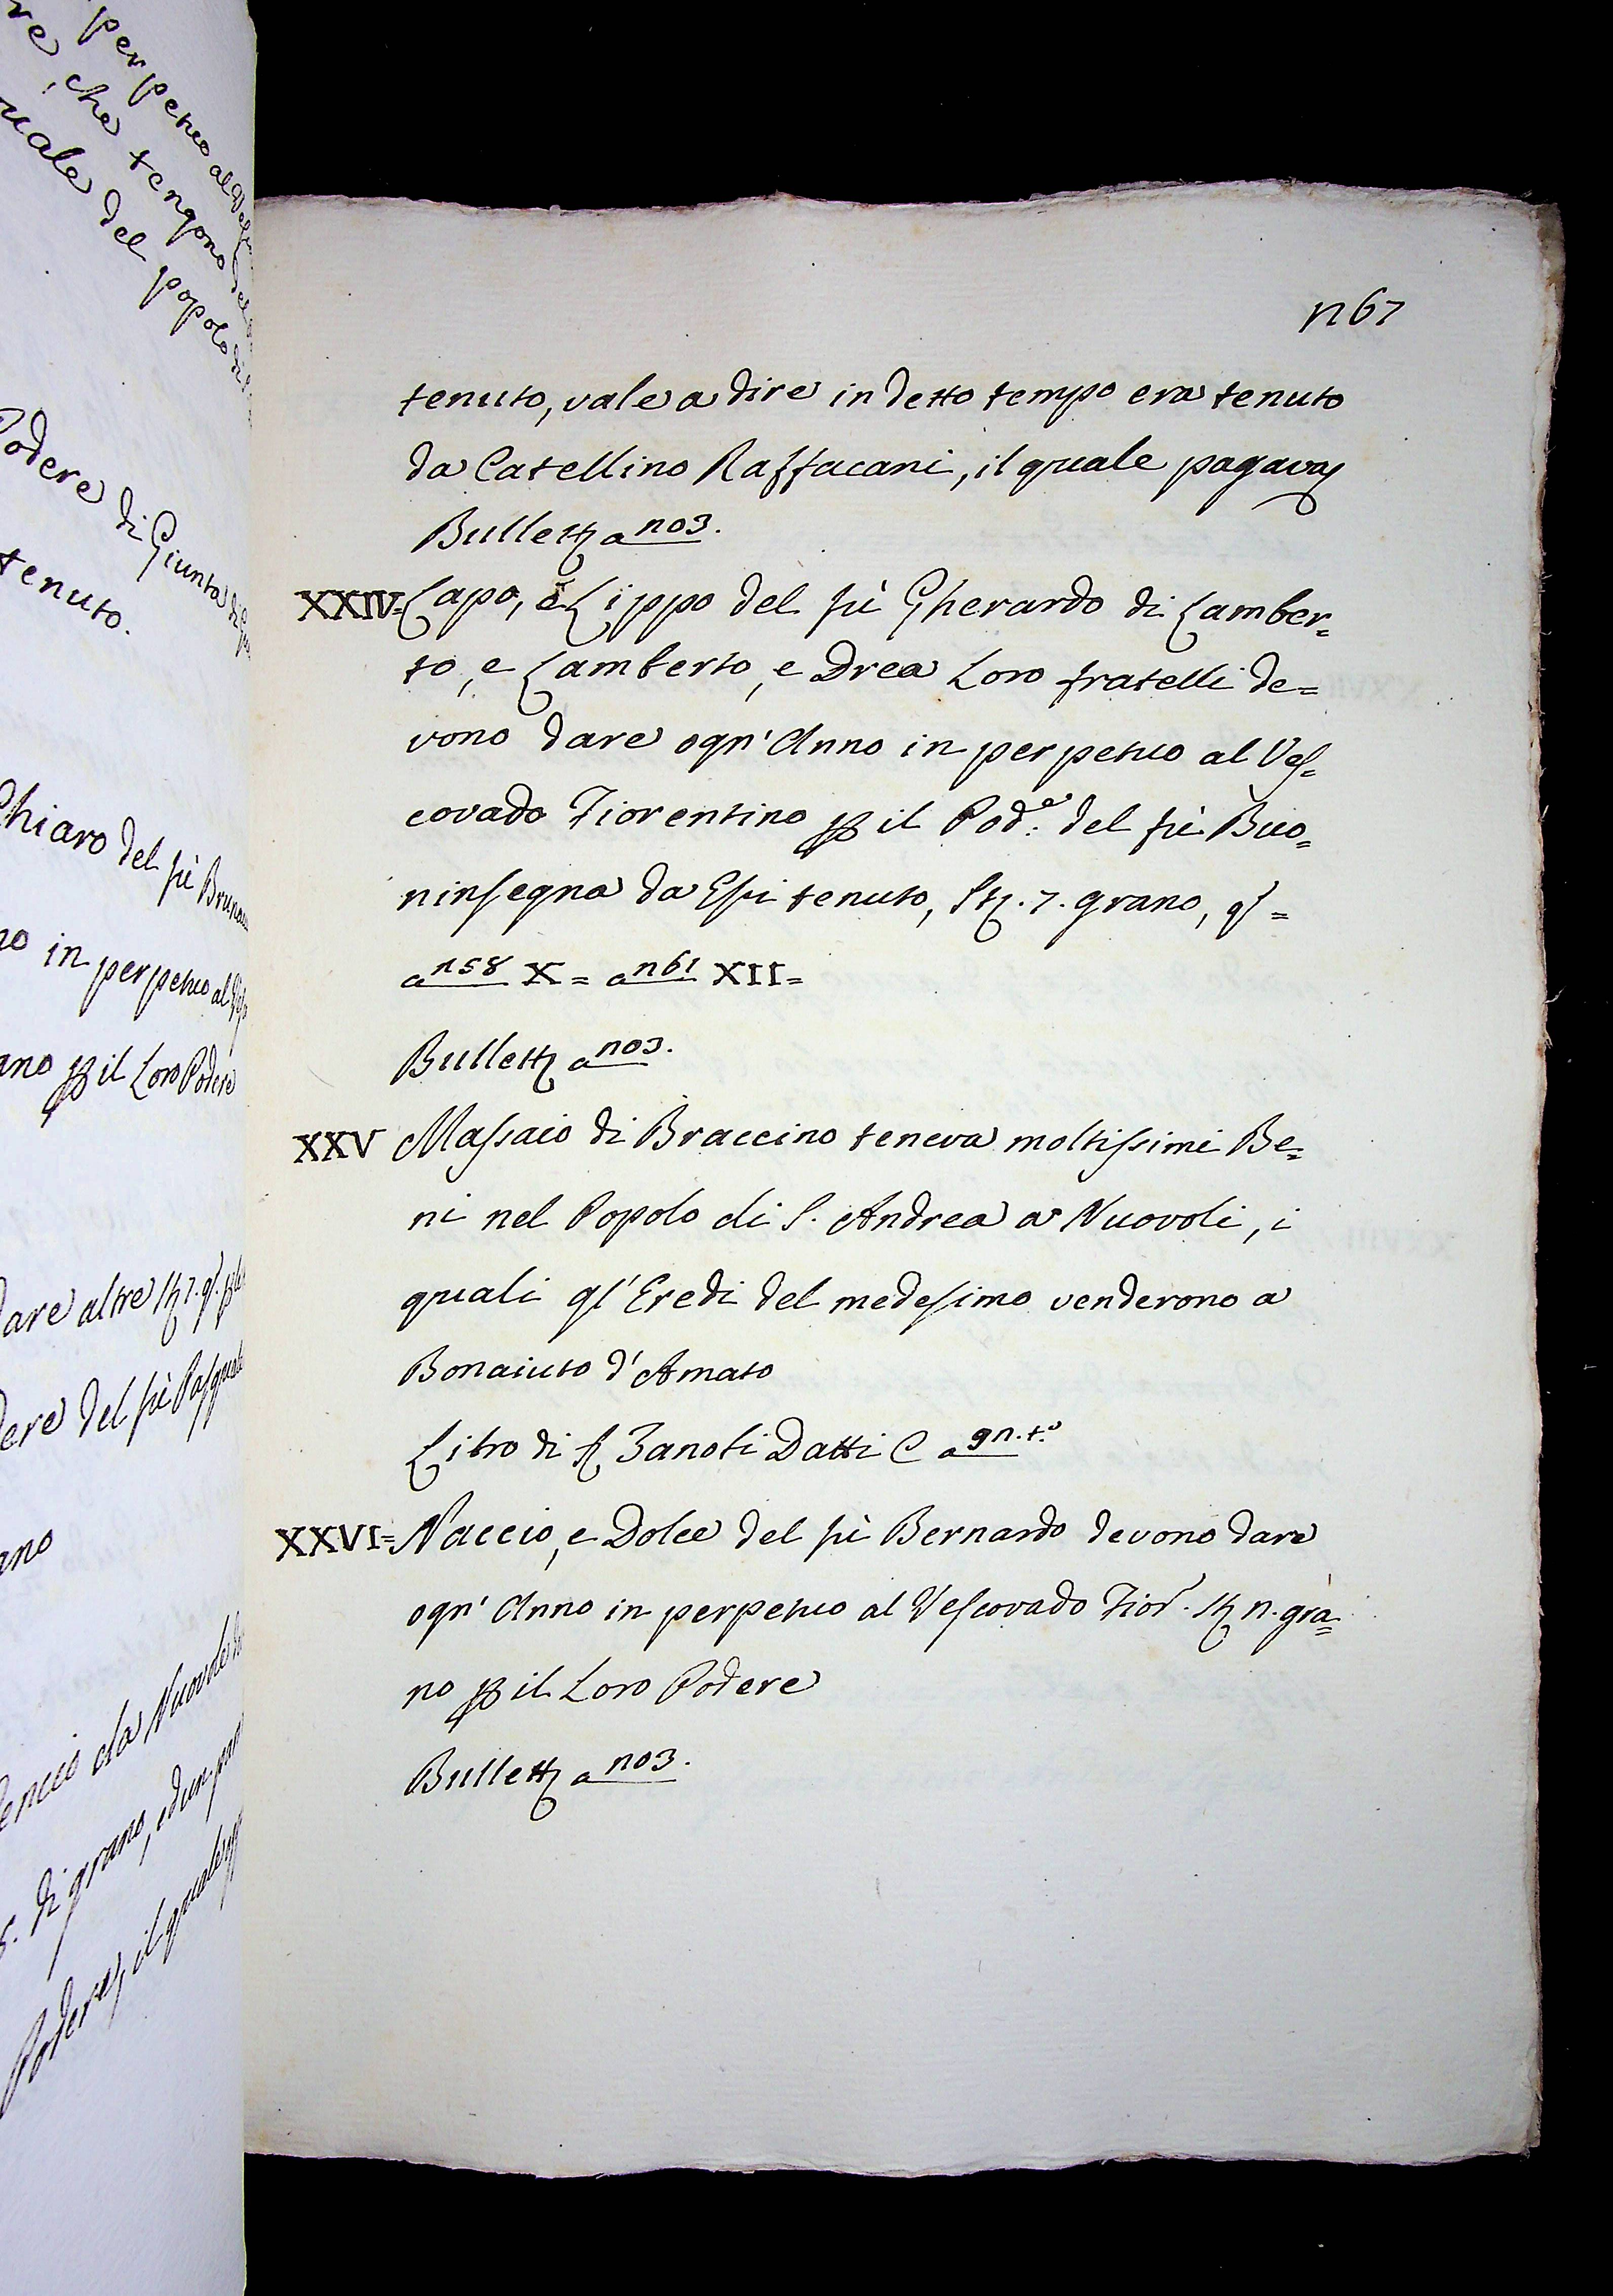 perpetuo al Vesc
re, che tengono del
uale del popolo di
Podere di Giunta di
tenuto.
Chiaro del fù Brun
no in perpetuo al
ano ꝑ il Loro Podere
dare altre
dere del fù Pasquale
ano
da Nuovole
di grano, ed un
Podere, il quale
n67
tenuto, vale a dire in detto tempo era tenuto
da Catellino Raffacani, il quale pagava
Bullett. a n03.
XXIV= Lapo, e Lippo del fù Gherardo di Lamber=
to, e Lamberto, e Drea Loro fratelli de=
vono dare ogn' Anno in perpetuo al Ves=
covado Fiorentino ꝑ il Pod.e del fù Buo=
ninsegna da Essi tenuto, St. 7. grano, qs=
a n58 X= a n61 XII=
Bullett. a n03.
XXV Massaio di Braccino teneva moltissimi Be=
ni nel Popolo di S. Andrea a Nuovoli, i
quali gl' Eredi del medesimo venderono a
Bonaiuto d' Amato
Libro di S. Zanobi Datti C a 9n.t.o
XXVI= Naccio, e Dolce del fù Bernardo devono dare
ogn' Anno in perpetuo al Vescovado Fior. St. n. gra=
no ꝑ il Loro Podere
Bullett. a n03.